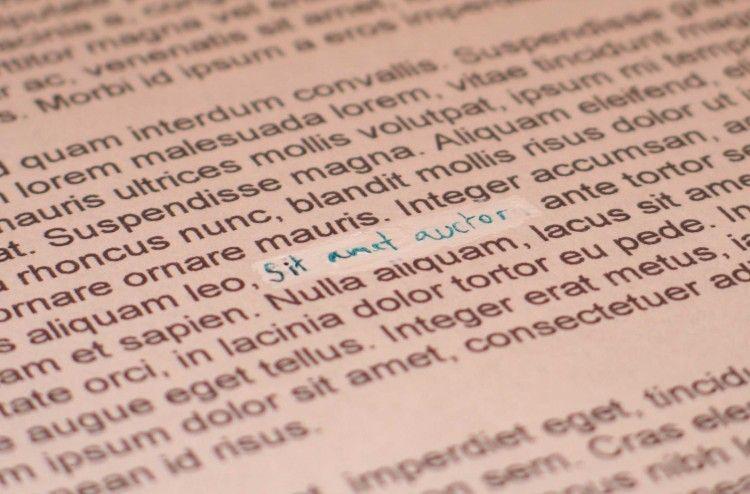 porttitor magna vel
ac, venenatis sit amet
s. Morbi id ipsum a eros
quam interdum convallis. Suspendisse
lorem malesuada lorem, vitae tincidunt
mauris ultrices mollis volutpat, ipsum mi
at. Suspendisse magna. Aliquam eleifend,
rhoncus nunc, blandit mollis risus dolor ut
ornare ornare mauris. Integer accumsan,
s aliquam leo, Sit amet auctor ante tortor
am et sapien. Nulla aliquam, lacus sit
tate orci, in lacinia dolor tortor eu pede. In
e augue eget tellus. Integer erat metus,
m ipsum dolor sit amet, consectetuer
ean id risus.
imperdiet eget,
sem. Cras
nibh